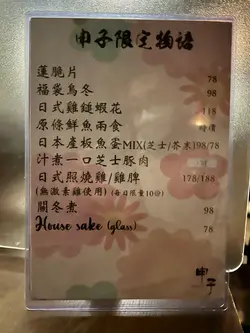 串子限定物语
蓮脆片 78
福袋烏冬 98
日式雞鎚蝦花 118
原條鮮魚兩食 時價
日本產板魚蛋MIX(芝士/芥末)98/78
汁煮一口芝士豚肉
日式照燒雞/雞髀 178/188
(無激素雞使用)(每日限量10份)
關冬煮 98
House sake (glass) 78
串子